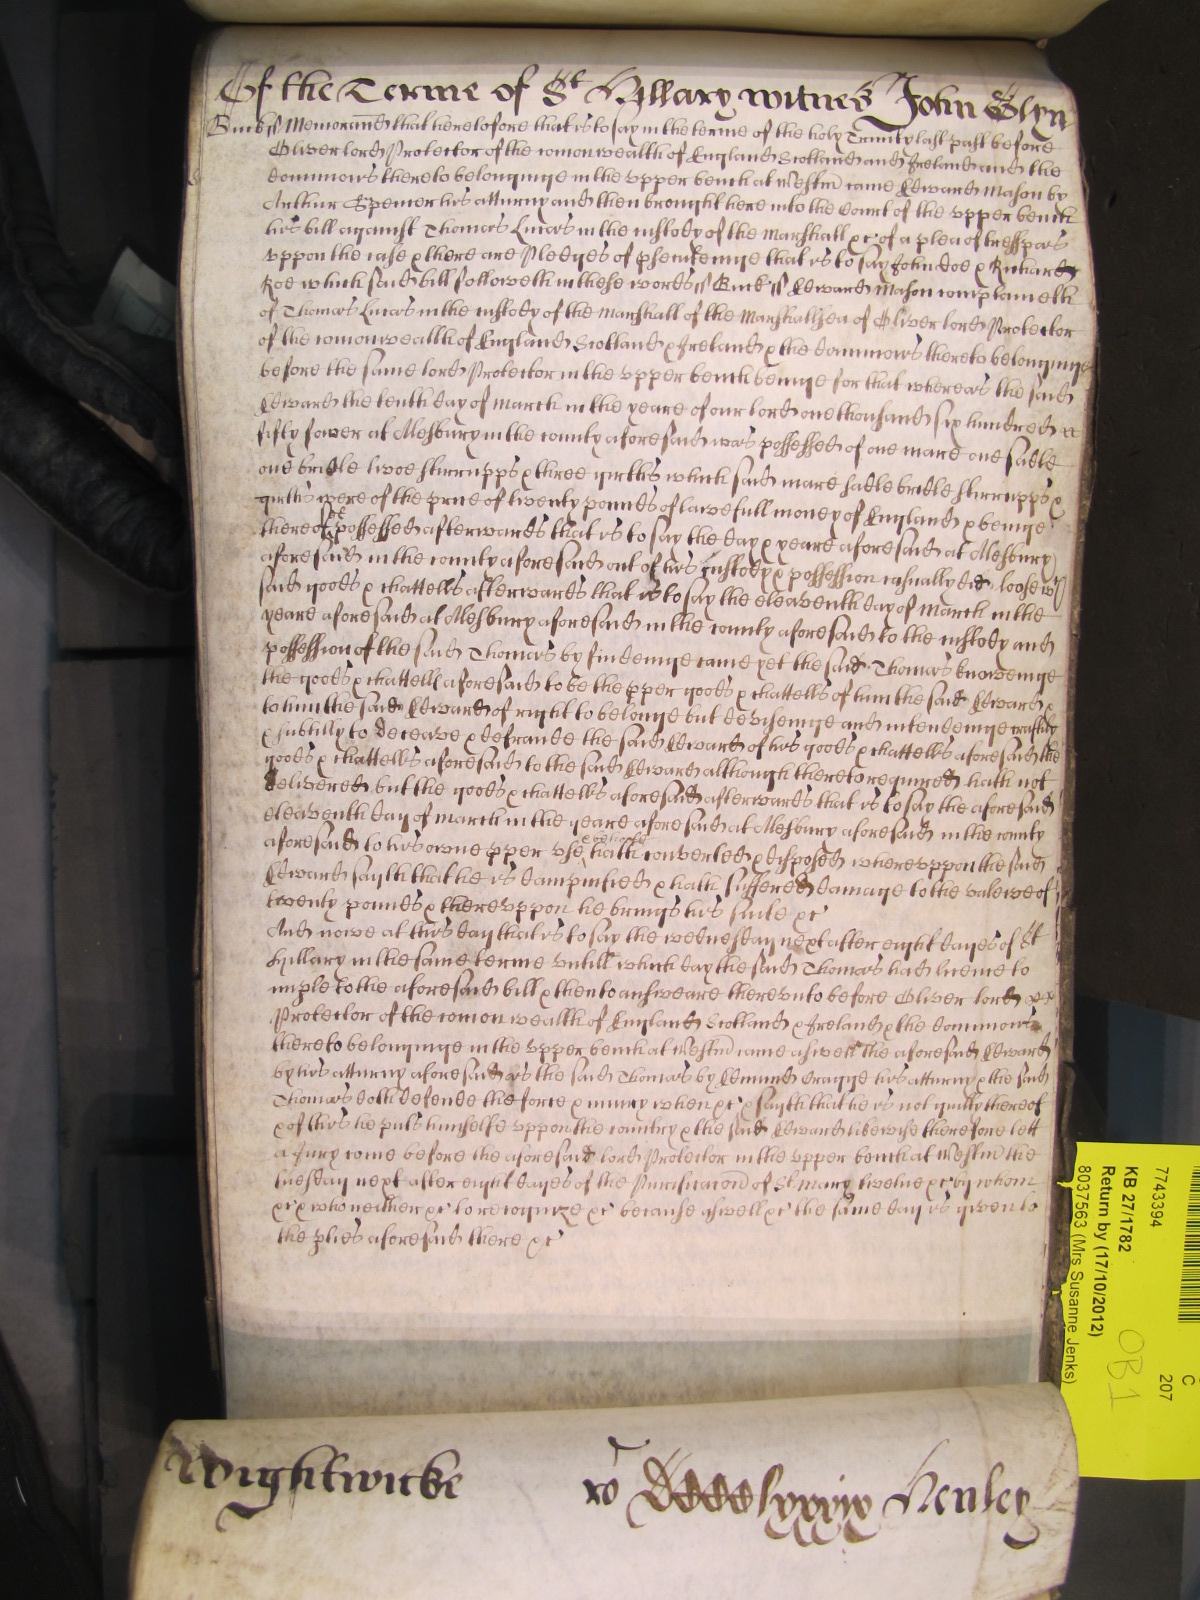 Of the Terme of St Hillary witnes John Glyn
Buck ss Memorand that heretofore that is to say in the terme of the holy Trinity last past before
Oliver lord Protector of the comonwealth of England Scotland and Ireland and the
dominions thereto belonginge in the upper bench at Westm came Edward Mason by
Arthur Spencer his atturny and then brought here into the Court of the upper bench
his bill against Thomas Lucas in the custody of the Marshall &c of a plea of tresspas
uppon the case & there are Pledges of prosecutinge that is to say John Doe & Richard
Roe which said bill followeth in these words ss Buck ss Edward Mason complaineth
of Thomas Lucas in the custody of the Marshall of the Marshallsea of Oliver lord Protector
of the comonwealth of England Scotland & Ireland & the dominions thereto belonginge
before the same lord Protector in the upper bench beinge for that whereas the said
Edward the tenth day of March in the yeare of our lord one thousand six hundred
fifty fower at Alesbury in the county aforesaid was possessed of one mare one sadle
one bridle twoe stirrupps & three girths which said mare sadle bridle stirrupps &
girths were of the price of twenty pounds of lawefull money of England & beinge
thereof soe possessed afterwards that is to say the day & yeare aforesaid at Alesbury
aforesaid in the county aforesaid out of his custody & possession casually did loose wch
said goods & chattells afterwards that is to say the eleaventh day of March in the
yeare aforesaid at Alesbury aforesaid in the county aforesaid to the custody and
possession of the said Thomas by findeinge came yet the said Thomas knoweinge
the goods & chattells aforesaid to be the pper goods & chattells of him the said Edward &
to him the said Edward of right to belonge but deviseinge and intendeinge craftily
& subtilly to deceave & defraude the said Edward of his goods & chattells aforesaid the
goods & chattells aforesaid to the said Edward although thereto required hath not
delivered but the goods & chattells aforesaid afterwards that is to say the aforesaid
eleaventh day of March in the yeare aforesaid at Alesbury aforesaid in the county
aforesaid to his owne pper use hath converted & disposed whereuppon the said
Edward saith that he is dampnified & hath suffered damage to the valewe of
twenty pounds & thereuppon he brings his suite &c
And nowe at this day that is to say the wednesday next after eight dayes of St
Hillary in the same terme untill which day the said Thomas had licence to
imple to the aforesaid bill & then to answeare thereunto before Oliver lord
Protector of the comonwealth of England Scotland & Ireland & the dominions
thereto belonginge in the upper bench at Westm came aswell the aforesaid Edward
by his atturny aforesaid as the said Thomas by Edmund Dragge his atturny & the said
Thomas doth defende the force & iniury when &c & saith that he is not guilty thereof
& of this he puts himselfe uppon the country & the said Edward likewise therefore lett
a Jury come before the aforesaid lord Protector in the upper bench at Westm the
tuesday next after eight dayes of the Purificacon of St Mary twelve &c by whom
&c & who neither &c to recognize &c because aswell &c the same day is given to
the pties aforesaid there &c
Wightwicke
ro
lxxxix Henley
7743394
C
207
KB 27/1782
Return by (17/10/2012)
8037563 (Mrs Susanne Jenks)
OB1